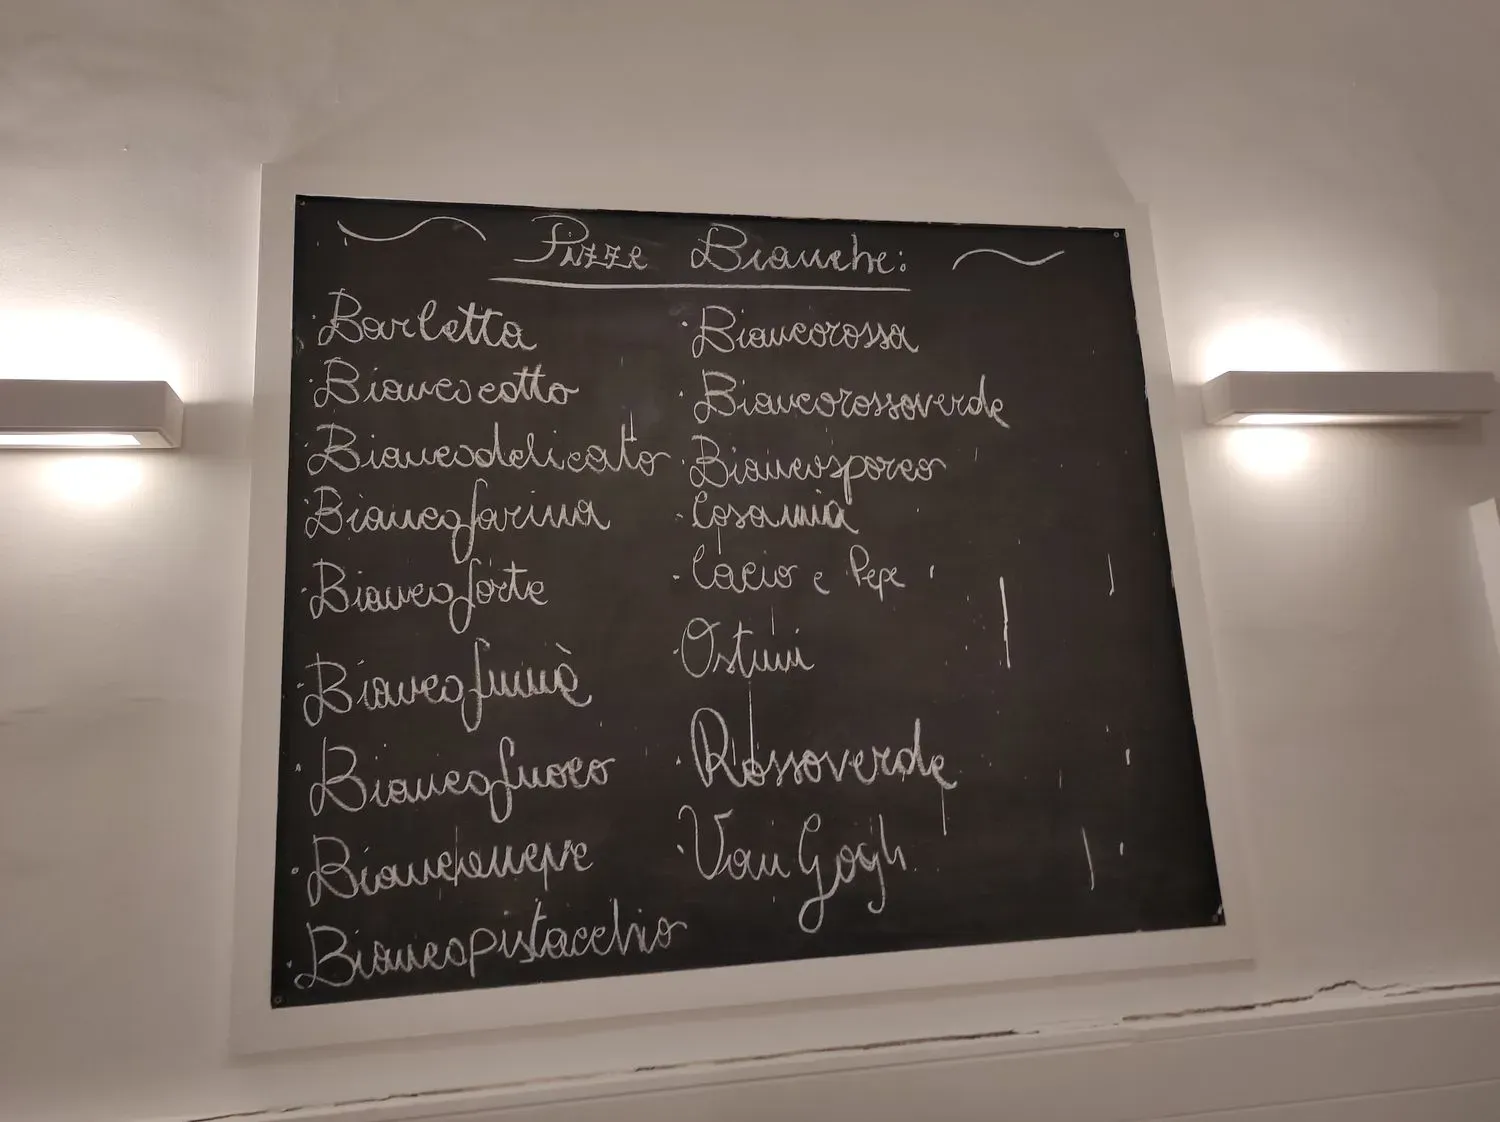 Pizze Bianche:
· Barletta
· Biancocotto
· Biancodelicato
· Biancofarina
· Biancoforte
· Biancofumè
· Biancofuoco
· Biancheneve
· Biancopistacchio
· Biancorossa
· Biancorossoverde
· Biancosporco
· Cosamia
· Cacio e Pepe
· Ostuni
· Rossoverde
· Van Gogh